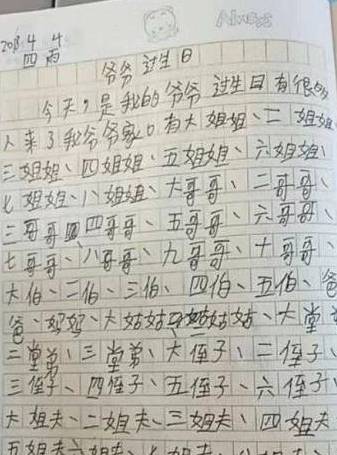 Always
2018 4 4
四 雨
爷爷过生日
今天，是我的爷爷过生日有很多
人来了我爷爷家。有大姐姐、二姐姐
三姐姐、四姐姐、五姐姐、六姐姐、
七姐姐、八姐姐、大哥哥、二哥哥、
三哥哥、四哥哥、五哥哥、六哥哥、
七哥哥、八哥哥、九哥哥、十哥哥、
大伯、二伯、三伯、四伯、五伯、爸
爸、妈妈、大姑姑、姑姑、大堂
二堂弟、三堂弟、大侄子、二侄子、
三侄子、四侄子、五侄子、六侄子、
大姐夫、二姐夫、三姐夫、四姐夫
五姐夫